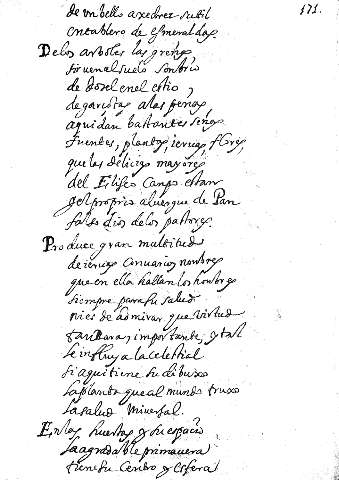 171.
de un bello axedrez sutil
en tablero de esmeraldas
De los arboles las greñas
siruen al suelo sombrio
de dosel en el estio,
de garçotas a las peñas,
aqui dan bastantes señas
Fuentes, plantas, ieruas, flores,
que las delicias mayores
del Eliseo Campo estan
y el proprio albergue de Pan
falso dios de los pastores.
Produce gran multitud
de ieruas con varios nombres
que en ella hallan los hombres
siempre para su salud
ni es de admirar que virtud
tan Rara, importante, y tal
se influya la celestial
si aqui tiene su dibuxo
la planta que al mundo truxo
la salud Vniuersal.
En las huertas y su espacio
la agradable primauera
tiene su Centro y Esfera